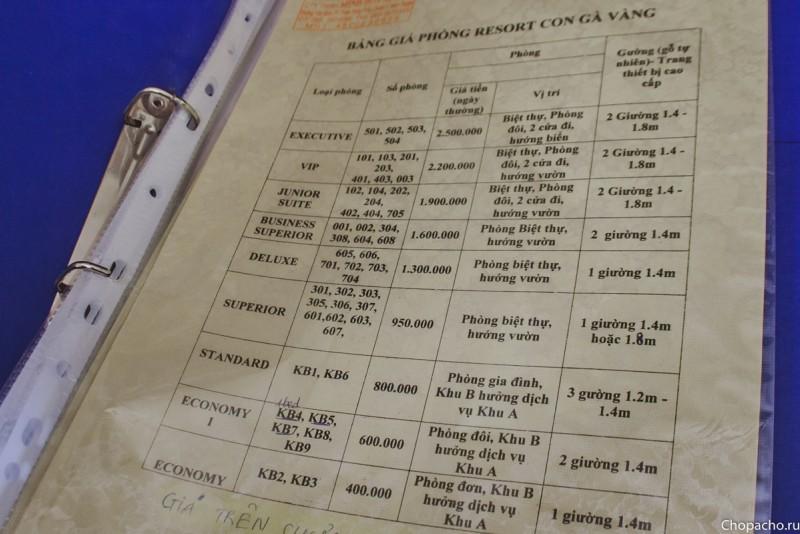 BẢNG GIÁ PHÒNG RESORT CON GÀ VÀNG
Loại phòng
Số phòng
Phòng
Giá tiền
(ngày
thường)
Vị trí
Gường (gỗ tự
nhiên)- Trang
thiết bị cao
cấp
EXECUTIVE
501, 502, 503,
504
2.500.000
Biệt thự, Phòng
đôi, 2 cửa đi,
hướng biển
2 Giường 1.4 -
1.8m
VIP
101, 103, 201,
203,
401, 403, 003
2.200.000
Biệt thự, Phòng
đôi, 2 cửa đi,
hướng vườn
2 Giường 1.4 -
1.8m
JUNIOR
SUITE
102, 104, 202,
204,
402, 404, 705
1.900.000
Biệt thự, Phòng
đôi, 2 cửa đi,
hướng vườn
2 Giường 1.4 -
1.8m
BUSINESS
SUPERIOR
001, 002, 304,
308, 604, 608
1.600.000
Phòng Biệt thự,
hướng vườn
2 giường 1.4m
DELUXE
605, 606,
701, 702, 703,
704
1.300.000
Phòng biệt thự,
hướng vườn
1 giường 1.4m
SUPERIOR
301, 302, 303,
305, 306, 307,
601,602, 603,
607,
950.000
Phòng biệt thự,
hướng vườn
1 giường 1.4m
hoặc 1.8m
STANDARD
KB1, KB6
800.000
Phòng gia đình,
Khu B hưởng dịch
vụ Khu A
3 gường 1.2m -
1.4m
ECONOMY
I
1bed
KB4, KB5,
KB7, KB8,
KB9
600.000
Phòng đôi, Khu B
hưởng dịch vụ
Khu A
2 giường 1.4m
ECONOMY
KB2, KB3
400.000
Phòng đơn, Khu B
hưởng dịch vụ
Khu A
1 giường 1.4m
GIÁ TRÊN
Chopacho.ru